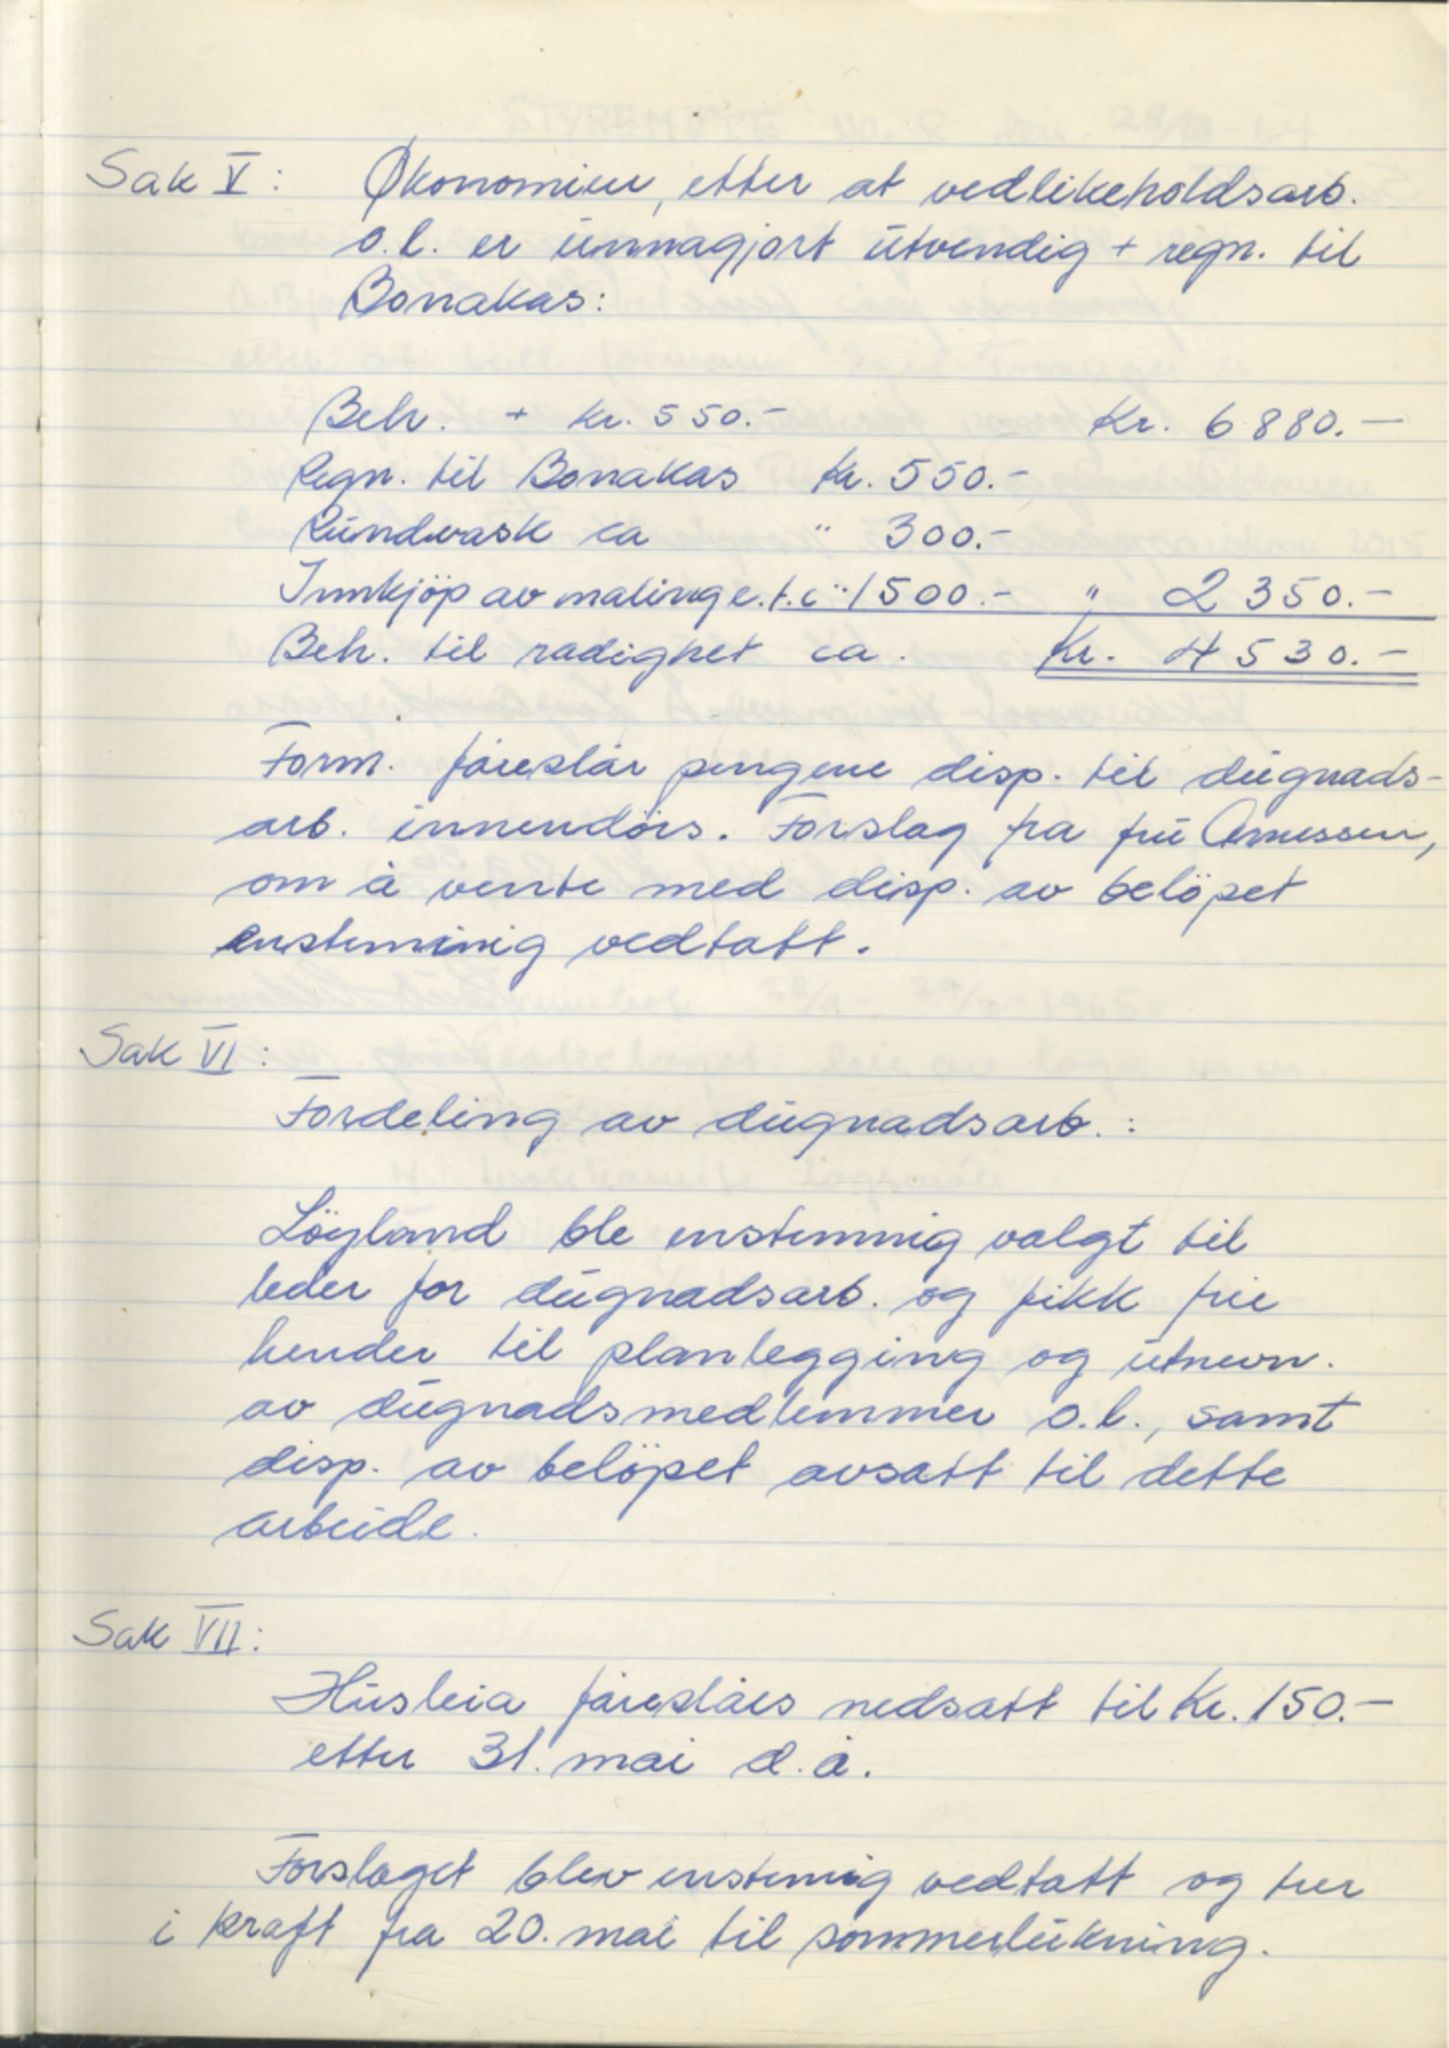 Sak V: Økonomien, etter at vedlikeholdsarb.
o.l. er unnagjort utvendig + regn. til
Bonakas:
Beh. + kr. 550.- Kr. 6880.-
Regn. til Bonakas Kr. 550.-
Rundvask ca " 300.-
Innkjöp av maling e.t.c " 1500.- " 2350.-
Beh. til rådighet ca. Kr. 4530.-
Form. foreslår pengene disp. til dugnads-
arb. innendörs. Forslag fra fru Arnessen,
om å vente med disp. av belöpet
enstemmig vedtatt.
Sak VI:
Fordeling av dugnadsarb.:
Löyland ble enstemmig valgt til
leder for dugnadsarb. og fikk frie
hender til planlegging og utnevn.
av dugnadsmedlemmer o.l., samt
disp. av belöpet avsatt til dette
arbeide.
Sak VII:
Husleia foreslåes nedsatt til Kr. 150.-
etter 31. mai d.å.
Forslaget blev enstemig vedtatt og trer
i kraft fra 20. mai til sommerlukning.